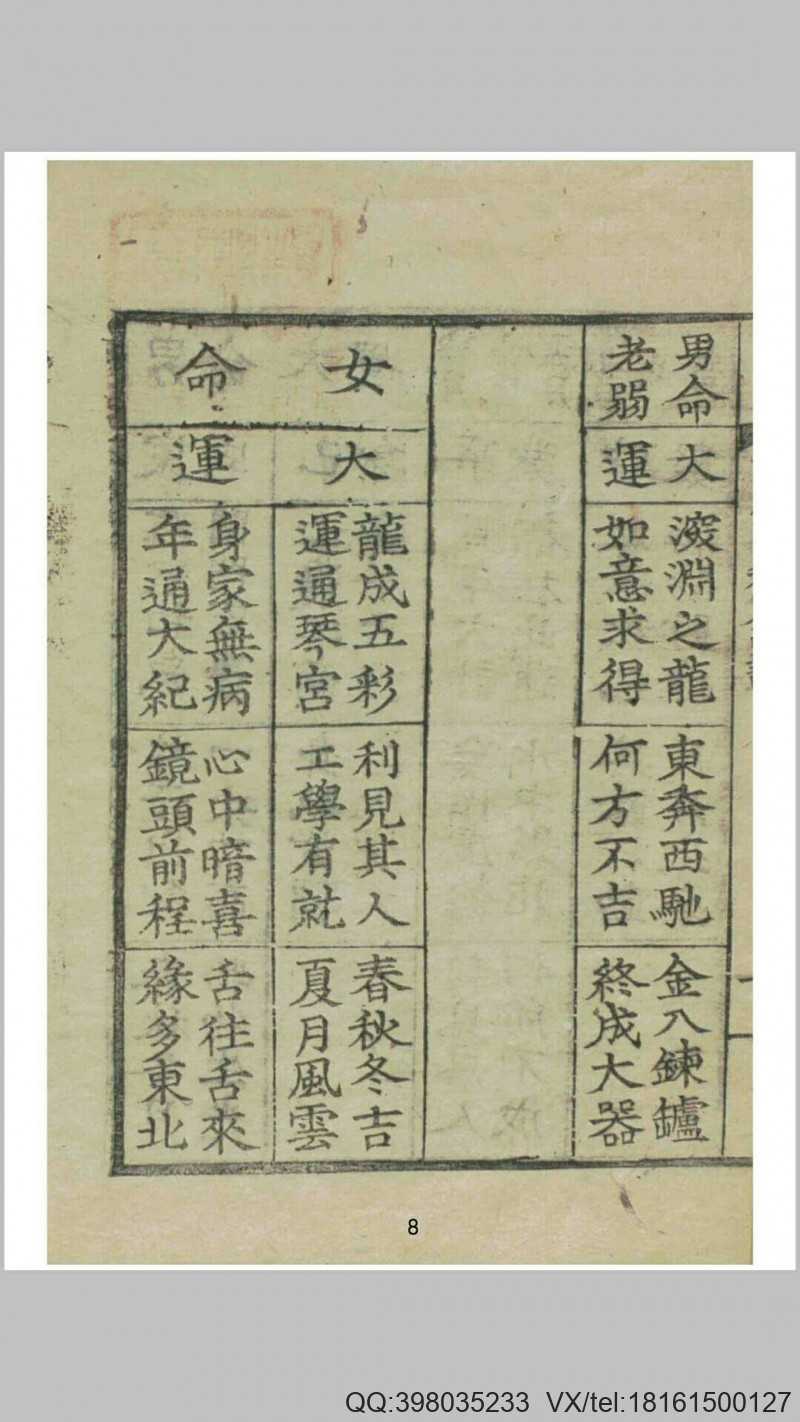 男命
老弱
大
運
湥淵之龍
如意求得
東奔西馳
何方不吉
金入鍊鑪
終成大器
女
命
大
運
龍成五彩
運通琴宮
利見其人
工學有就
春秋冬吉
夏月風雲
身家無病
年通大紀
心中暗喜
鏡頭前程
舌往舌來
緣多東北
8
QQ:398035233 VX/tel:18161500127